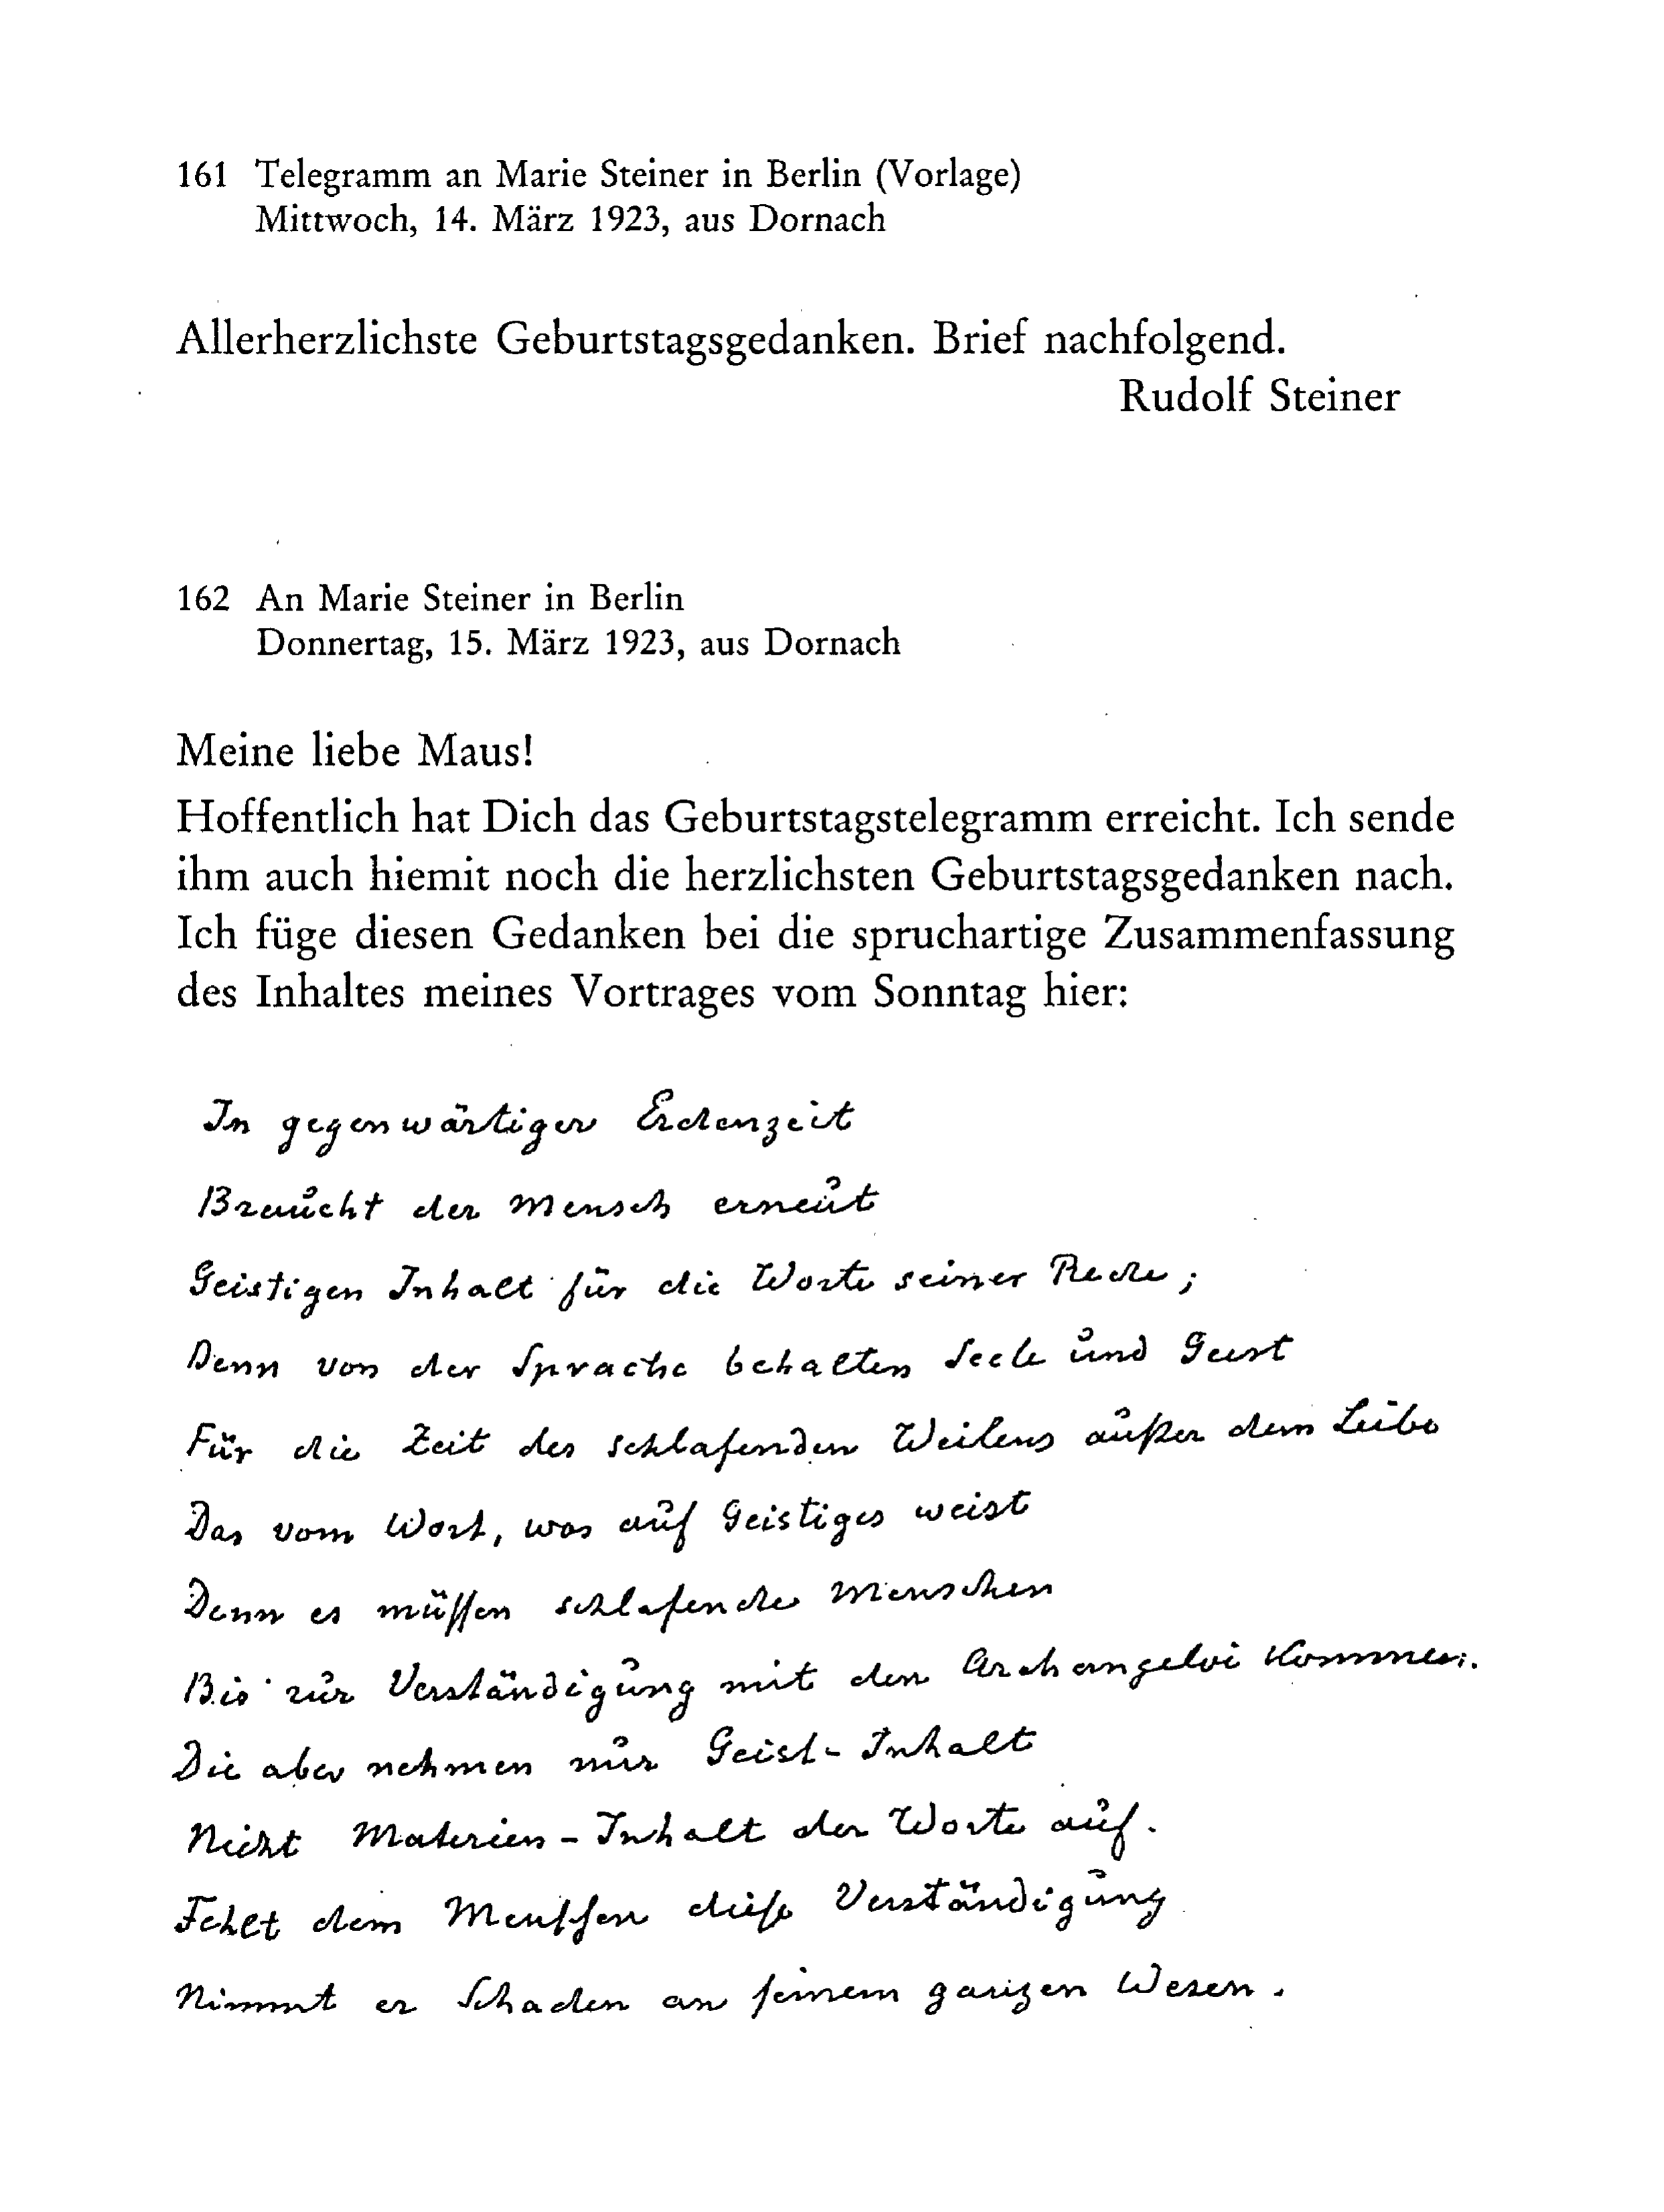 161 Telegramm an Marie Steiner in Berlin (Vorlage)
Mittwoch, 14. März 1923, aus Dornach
Allerherzlichste Geburtstagsgedanken. Brief nachfolgend.
Rudolf Steiner
162 An Marie Steiner in Berlin
Donnertag, 15. März 1923, aus Dornach
Meine liebe Maus!
Hoffentlich hat Dich das Geburtstagstelegramm erreicht. Ich sende
ihm auch hiemit noch die herzlichsten Geburtstagsgedanken nach.
Ich füge diesen Gedanken bei die spruchartige Zusammenfassung
des Inhaltes meines Vortrages vom Sonntag hier:
In gegenwärtiger Erdenzeit
Braucht der Mensch erneut
Geistigen Inhalt für die Worte seiner Rede;
Denn von der Sprache behalten Seele und Geist
Für die Zeit des schlafenden Weilens außer dem Leibe
Das vom Wort, was auf Geistiges weist
Denn es müssen schlafende Menschen
Bis zur Verständigung mit den Archangeloi kommen.
Die aber nehmen nur Geist-Inhalt
Nicht Materien-Inhalt der Worte auf.
Fehlt dem Menschen diese Verständigung
Nimmt er Schaden an seinem ganzen Wesen.